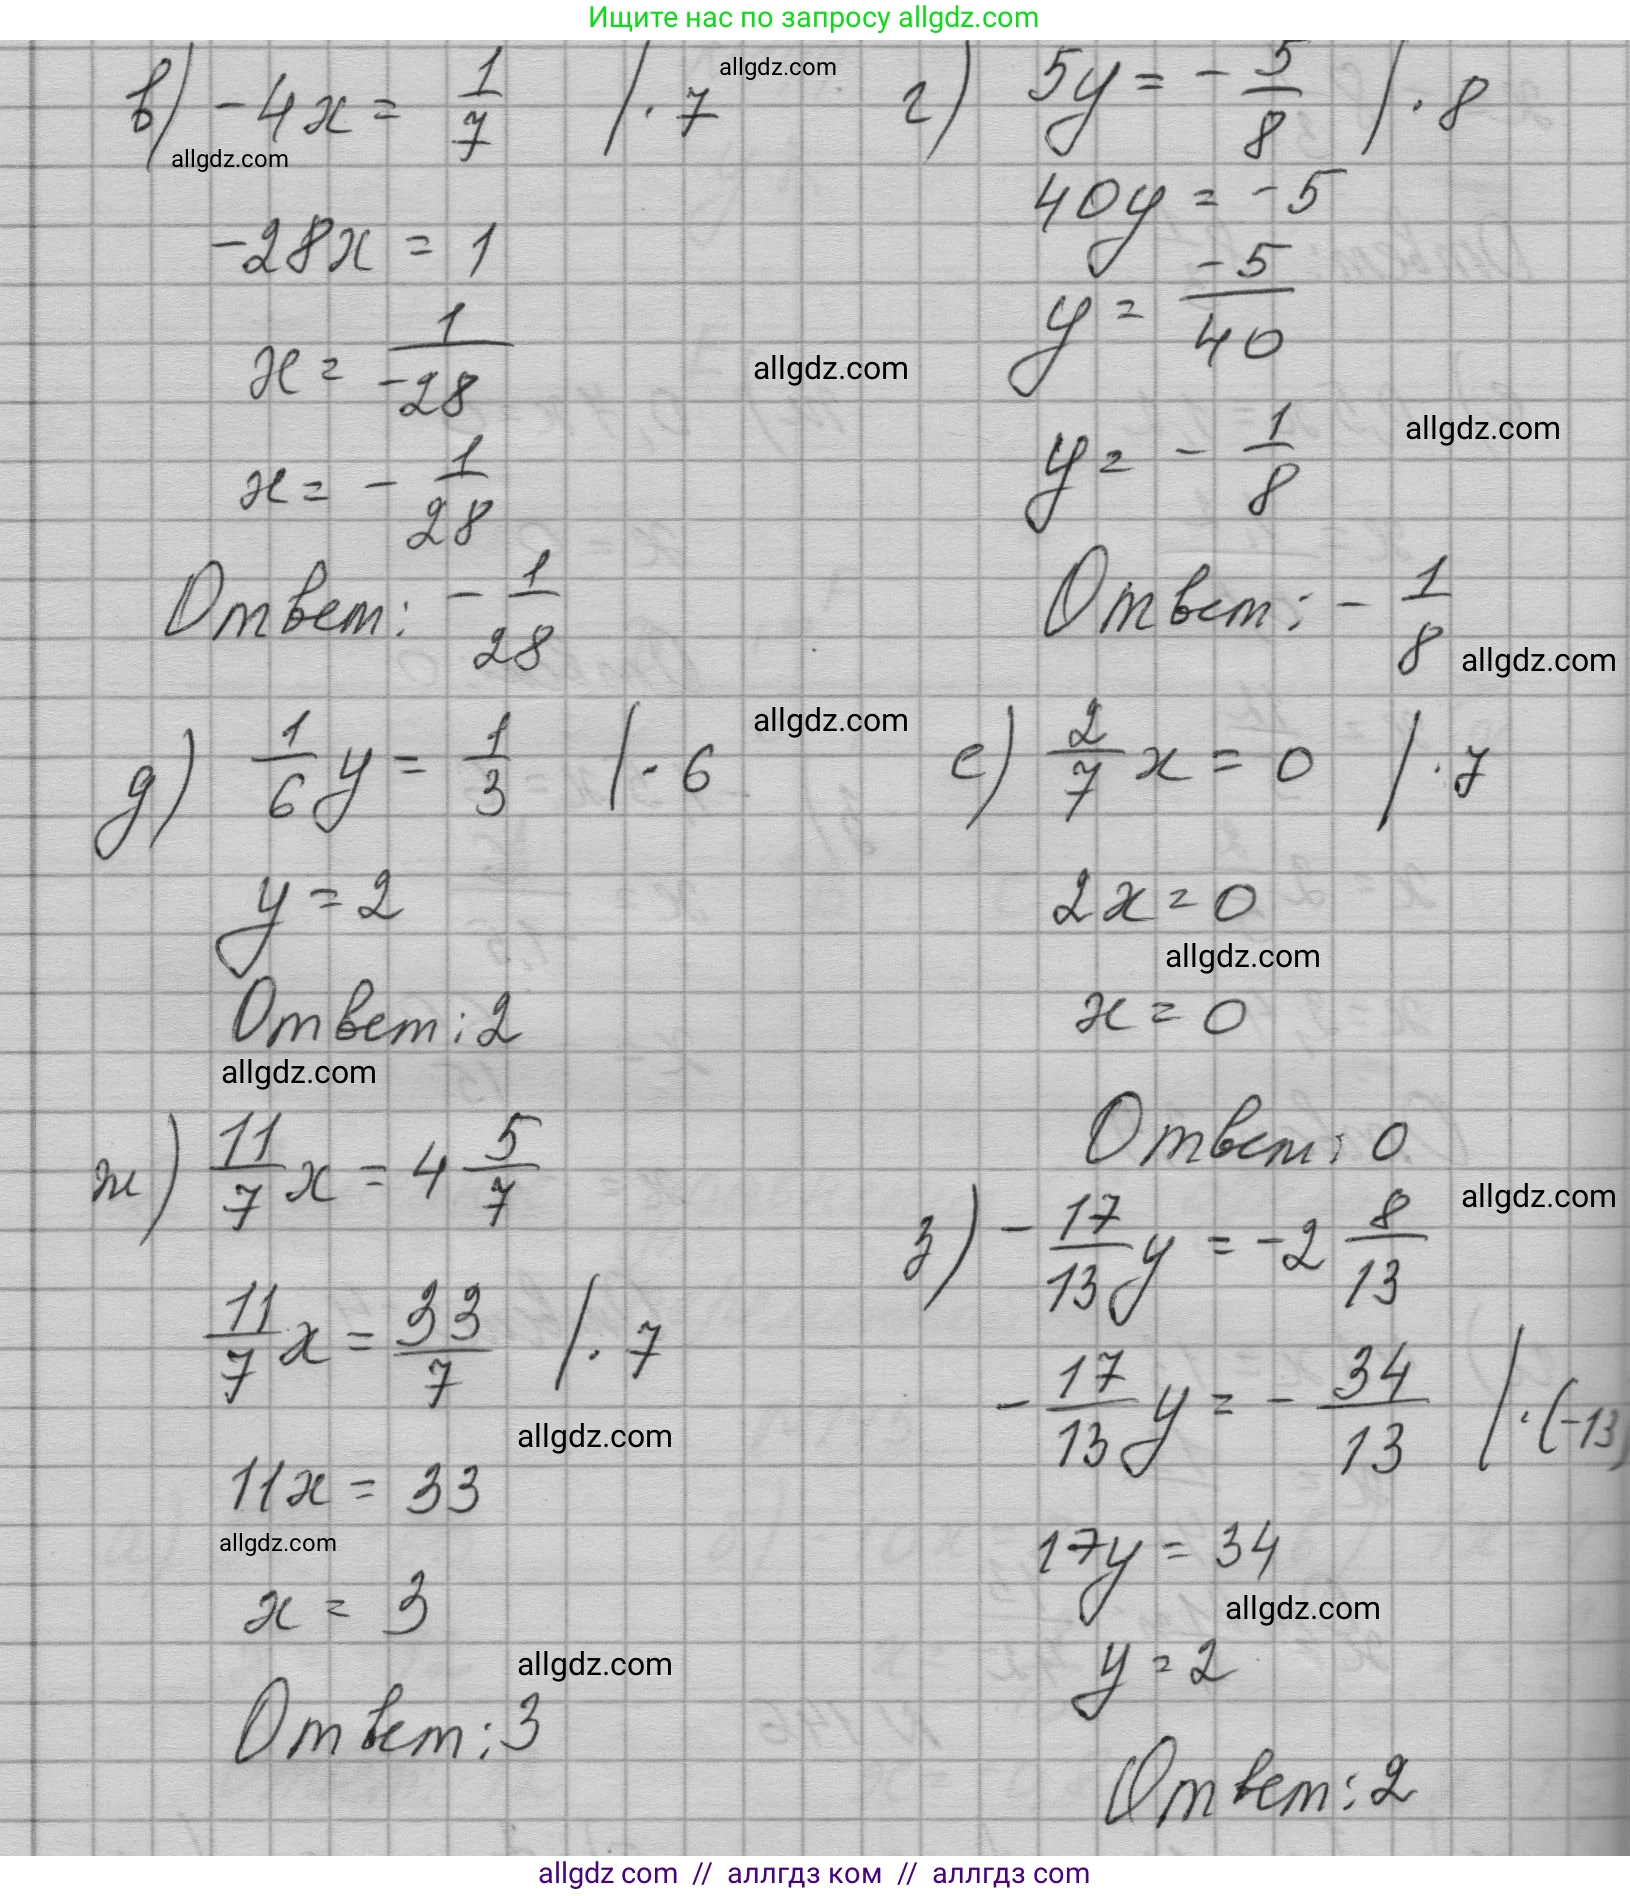 Ищите нас по запросу allgdz.com
allgdz.com
в) -4x = 1/7 | · 7
allgdz.com
-28x = 1
x = 1/-28
x = - 1/28
Ответ: - 1/28
г) 5y = - 5/8 | · 8
40y = -5
y = -5/40
y = - 1/8
Ответ: - 1/8
allgdz.com
allgdz.com
allgdz.com
allgdz.com
д) 1/6 y = 1/3 | · 6
y = 2
Ответ: 2
allgdz.com
е) 2/7 x = 0 | · 7
2x = 0
allgdz.com
x = 0
Ответ: 0
allgdz.com
ж) 11/7 x = 4 5/7
11/7 x = 33/7 | · 7
allgdz.com
11x = 33
allgdz.com
x = 3
allgdz.com
Ответ: 3
з) - 17/13 y = -2 8/13
- 17/13 y = - 34/13 | · (-13)
17y = 34
allgdz.com
y = 2
Ответ: 2
allgdz com // аллгдз ком // аллгдз com